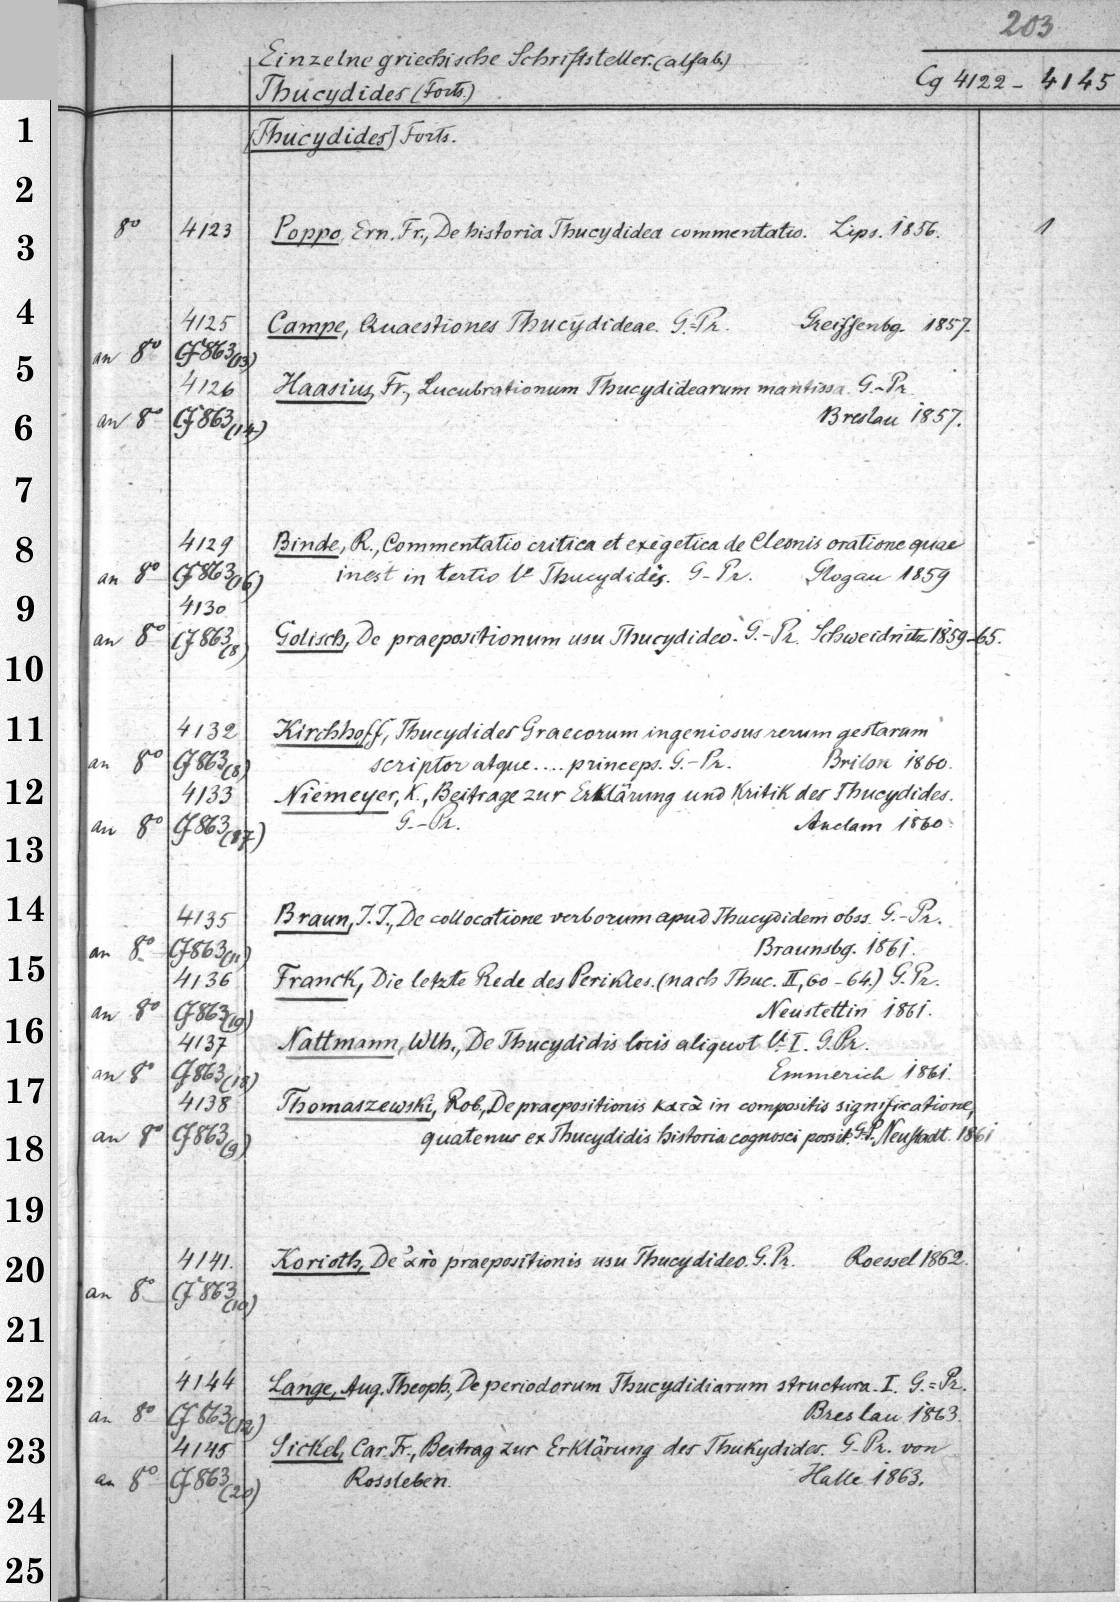 203
Einzelne griechische Schriftsteller. (alfab.)
Thucydides (Forts.)
Cg 4122 - 4145
1
[Thucydides] Forts.
2
8° 4123 Poppo, Ern. Fr., De historia Thucydidea commentatio. Lips. 1856. 1
3
4
4125 Campe, Quaestiones Thucydideae. G.-Pr. Greiffenbg. 1857.
an 8° Cf 863 (13)
5
4126 Haasius, Fr., Lucubrationum Thucydidearum mantissa. G.-Pr.
an 8° Cf 863 (14) Breslau 1857.
6
7
8
4129 Binde, R., Commentatio critica et exigetica de Cleonis oratione quae
an 8° Cf 863 (16) inest in tertio l° Thucydidis. G-Pr. Glogau 1859
9
4130
an 8° Cf 863 (8) Golisch, De praepositionum usu Thucydideo. G.-Pr. Schweidnitz 1859-65.
10
11
4132 Kirchhoff, Thucydides Graecorum ingeniosus rerum gestarum
an 8° Cf 863 (8) scriptor atque .... princeps. G.-Pr. Brilon 1860.
12
4133 Niemeyer, K., Beitrage zur Erklärung und Kritik des Thucydides.
an 8° Cf 863 (17) G.-Pr. Anclam 1860
13
14
4135 Braun, J. J., De collocatione verborum apud Thucydidem obss. G.-Pr.
an 8° Cf 863 (11) Braunsbg. 1861.
15
4136 Franck, Die letzte Rede des Perikles. (nach Thuc. II, 60-64.) G.Pr.
an 8° Cf 863 (19) Neustettin 1861.
16
4137 Nattmann, Wlh., De Thucydidis locis aliquot l. I. G.Pr.
an 8° Cf 863 (18) Emmerich 1861.
17
4138 Thomaszewski, Rob., De praepositionis κατὰ in compositis significatione,
an 8° Cf 863 (9) quatenus ex Thucydidis historia cognosci possit. G.P. Neustadt. 1861
18
19
4141. Korioth, De ἀπὸ praepositionis usu Thucydideo. G.Pr. Roessel 1862.
20
an 8° Cf 863 (10)
21
22
4144 Lange, Aug. Theoph., De periodorum Thucydidiarum structura. I. G.-Pr.
an 8° Cf 863 (12) Breslau 1863.
23
4145 Sickel, Car. Fr., Beitrag zur Erklärung des Thukydides. G-Pr. von
an 8° Cf 863 (20) Rossleben. Halle 1863.
24
25